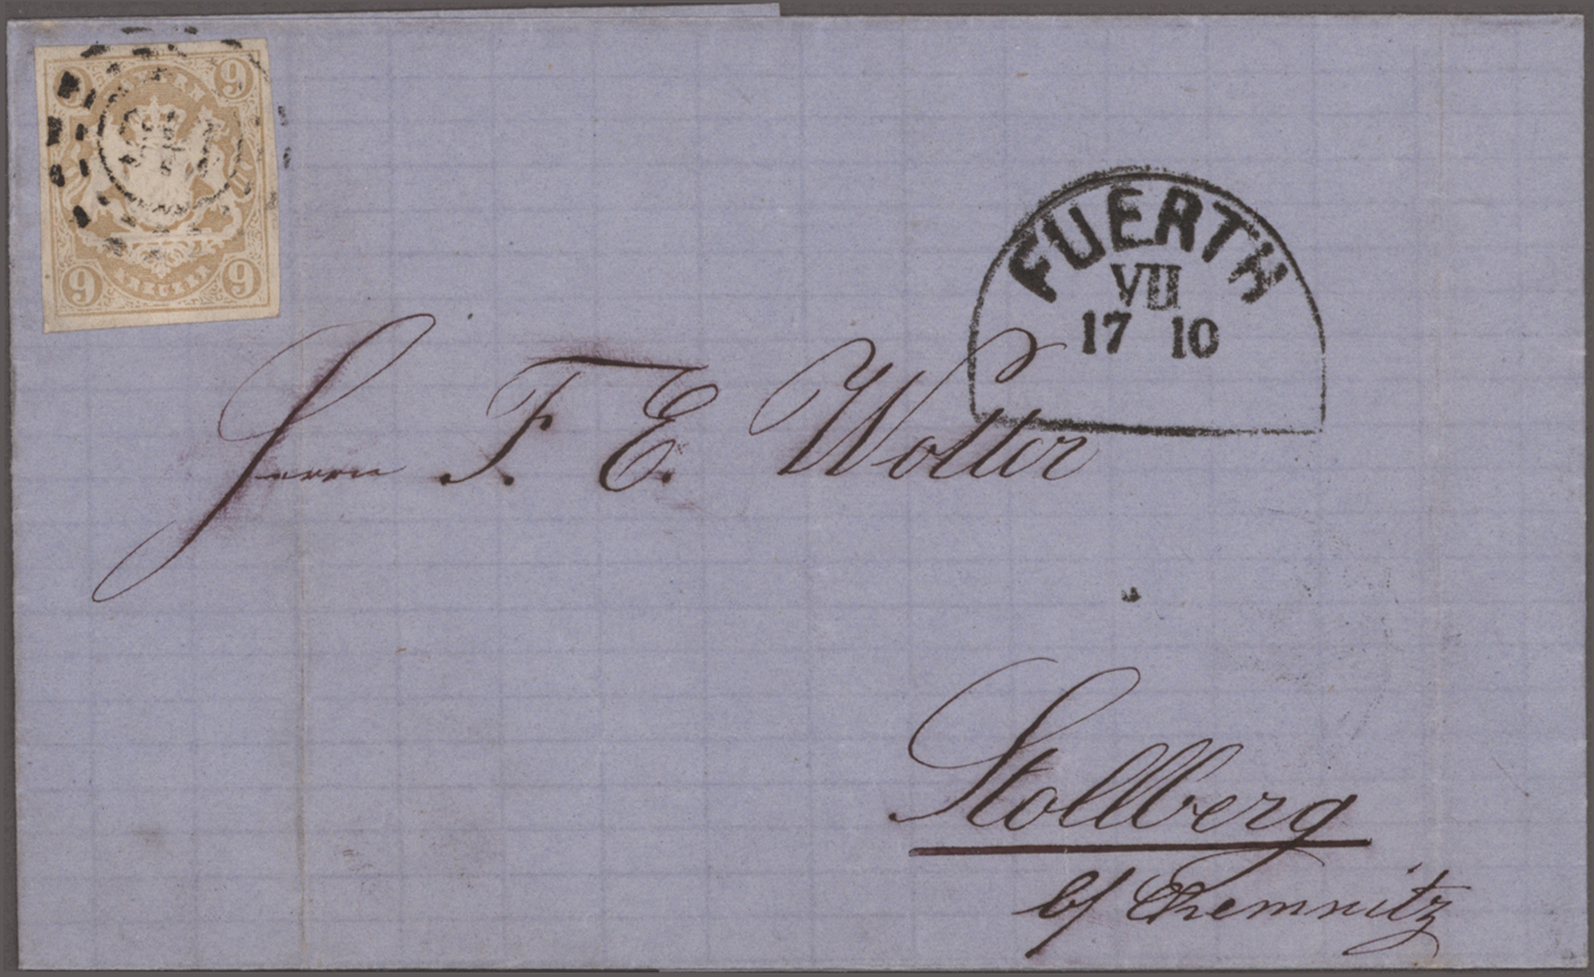 9 9
FUERTH
VII
17 10
Herrn F. E. Wolter
9 KREUZER 9
Stollberg
b/ Chemnitz